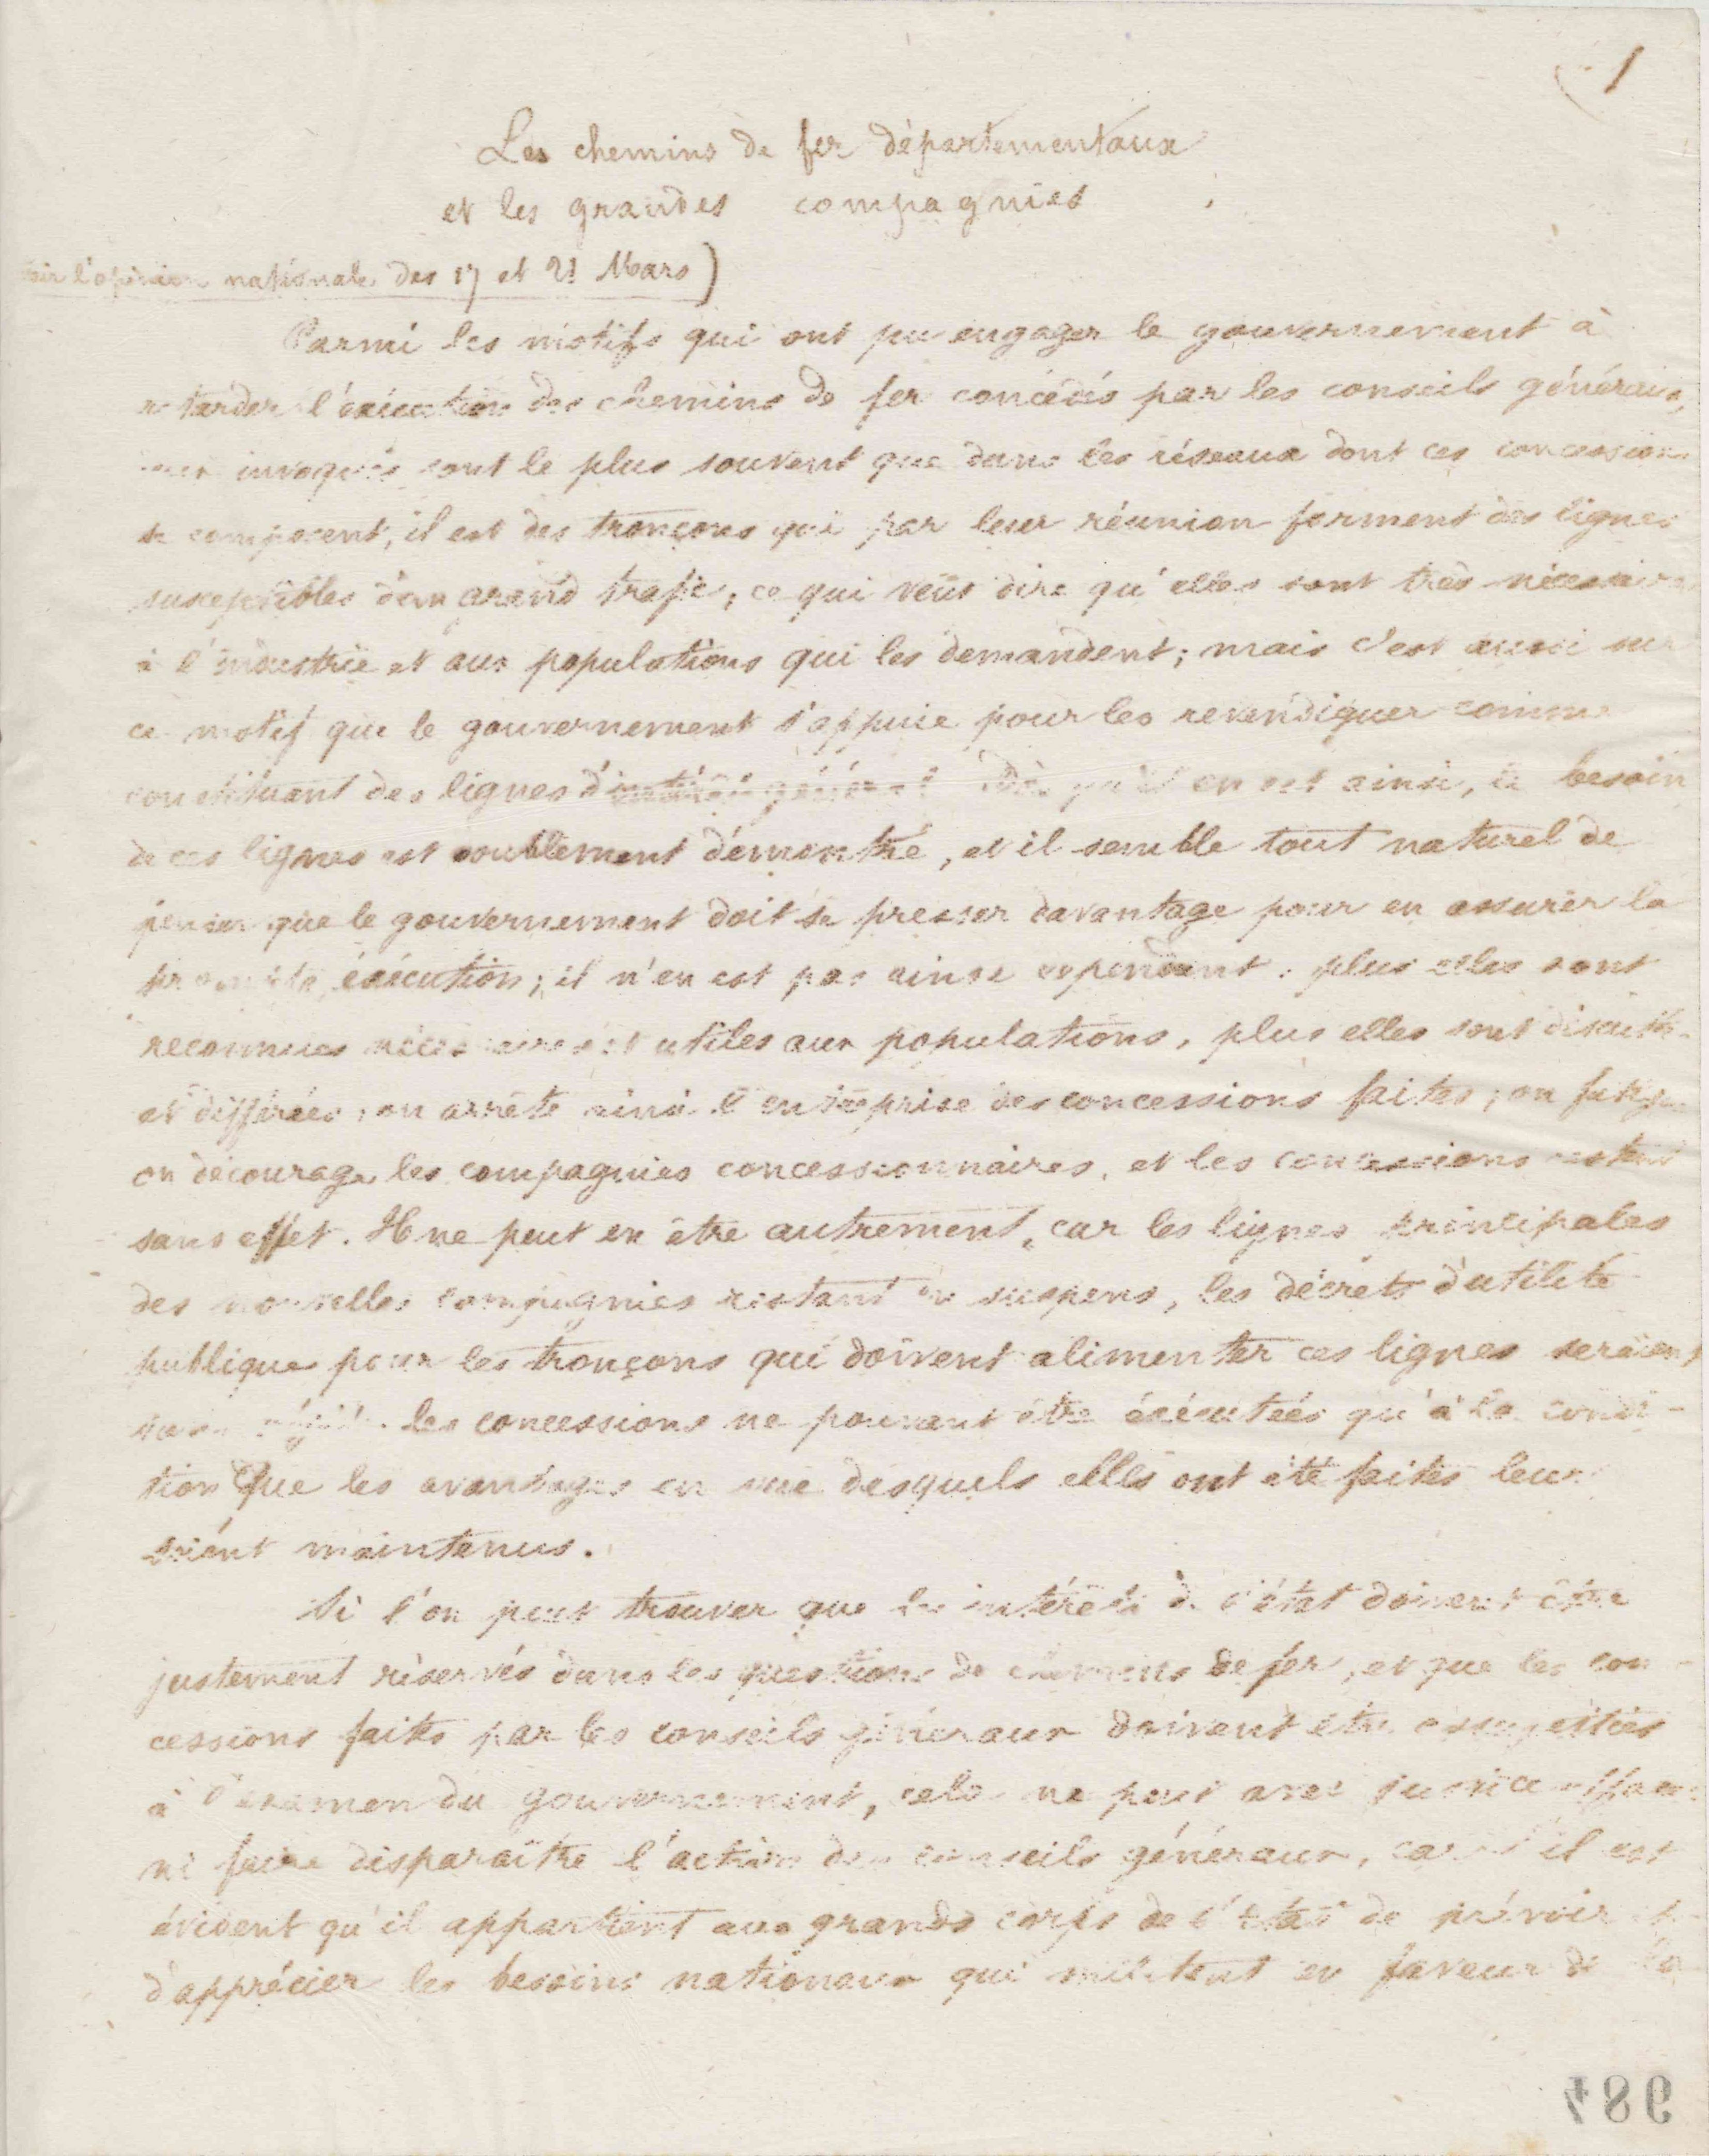 1
Les chemins de fer départementaux
et les grandes compagnies
l'opinion nationale des 17 et 21 Mars)
Parmi les motifs qui ont pu engager le gouvernement à
retarder l'exécution des chemins de fer concédés par les conseils généraux,
invoqués sont le plus souvent que dans les réseaux dont ces concessions
se composent, il est des tronçons qui par leur réunion forment des lignes
susceptibles d'un grand trafic, ce qui veut dire qu'elles sont très nécessaires
à l'industrie et aux populations qui les demandent; mais c'est aussi sur
ce motif que le gouvernement s'appuie pour les revendiquer comme
constituant des lignes d'intérêt général. Dès qu'il en est ainsi, le besoin
de ces lignes est doublement démontré, et il semble tout naturel de
penser que le gouvernement doit se presser davantage pour en assurer la
prompte exécution; il n'en est pas ainsi cependant: plus elles sont
reconnues nécessaires et utiles aux populations, plus elles sont discutées
et différées; on arrête ainsi l'entreprise des concessions faites; on fatigue
on décourage les compagnies concessionnaires, et les concessions restent
sans effet. Il ne peut en être autrement, car les lignes principales
des nouvelles compagnies restant en suspens, les décrets d'utilité
publique pour les tronçons qui doivent alimenter ces lignes seraient
sans les concessions ne pouvant être exécutées qu'à la condi-
tion que les avantages en vue desquels elles ont été faites leur
soient maintenus.
Si l'on peut trouver que les intérêts de l'état doivent être
justement réservés dans les questions de chemins de fer, et que les con-
cessions faites par les conseils généraux doivent être assujetties
à l'examen du gouvernement, cela ne peut avec justice effacer
ni faire disparaître l'action des conseils généraux, car s'il est
évident qu'il appartient aux grands corps de l'état de prévoir et
d'apprécier les besoins nationaux qui militent en faveur de la
984